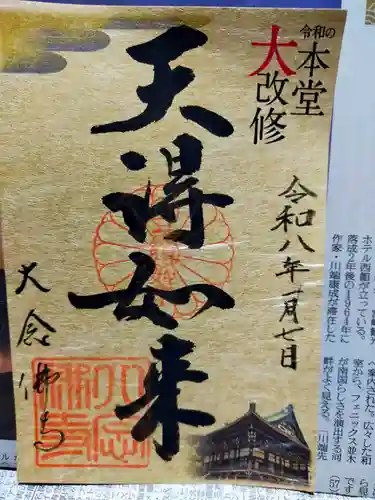 令和の
本堂
大改修
天得如来
令和八年一月七日
大念佛寺
ホテル西館が立っている。
落成2年後の1964年に
作家・川端康成が滞在した
へ案内された。広々した和
室から、フェニックス並木
が南国らしさを演出する河
畔がよく見える。
川端先
57